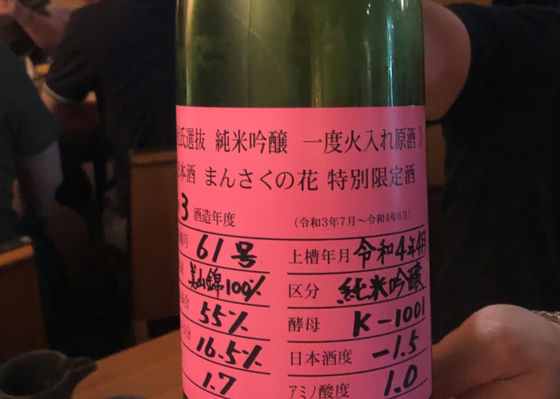 氏選抜 純米吟醸 一度火入れ原酒》
本酒 まんさくの花 特別限定酒
3 酒造年度 (令和3年7月〜令和4年6月)
号 61号 上槽年月 令和4年4月
美山錦100% 区分 純米吟醸
合 55% 酵母 K-1001
分 16.5% 日本酒度 -1.5
1.7 アミノ酸度 1.0